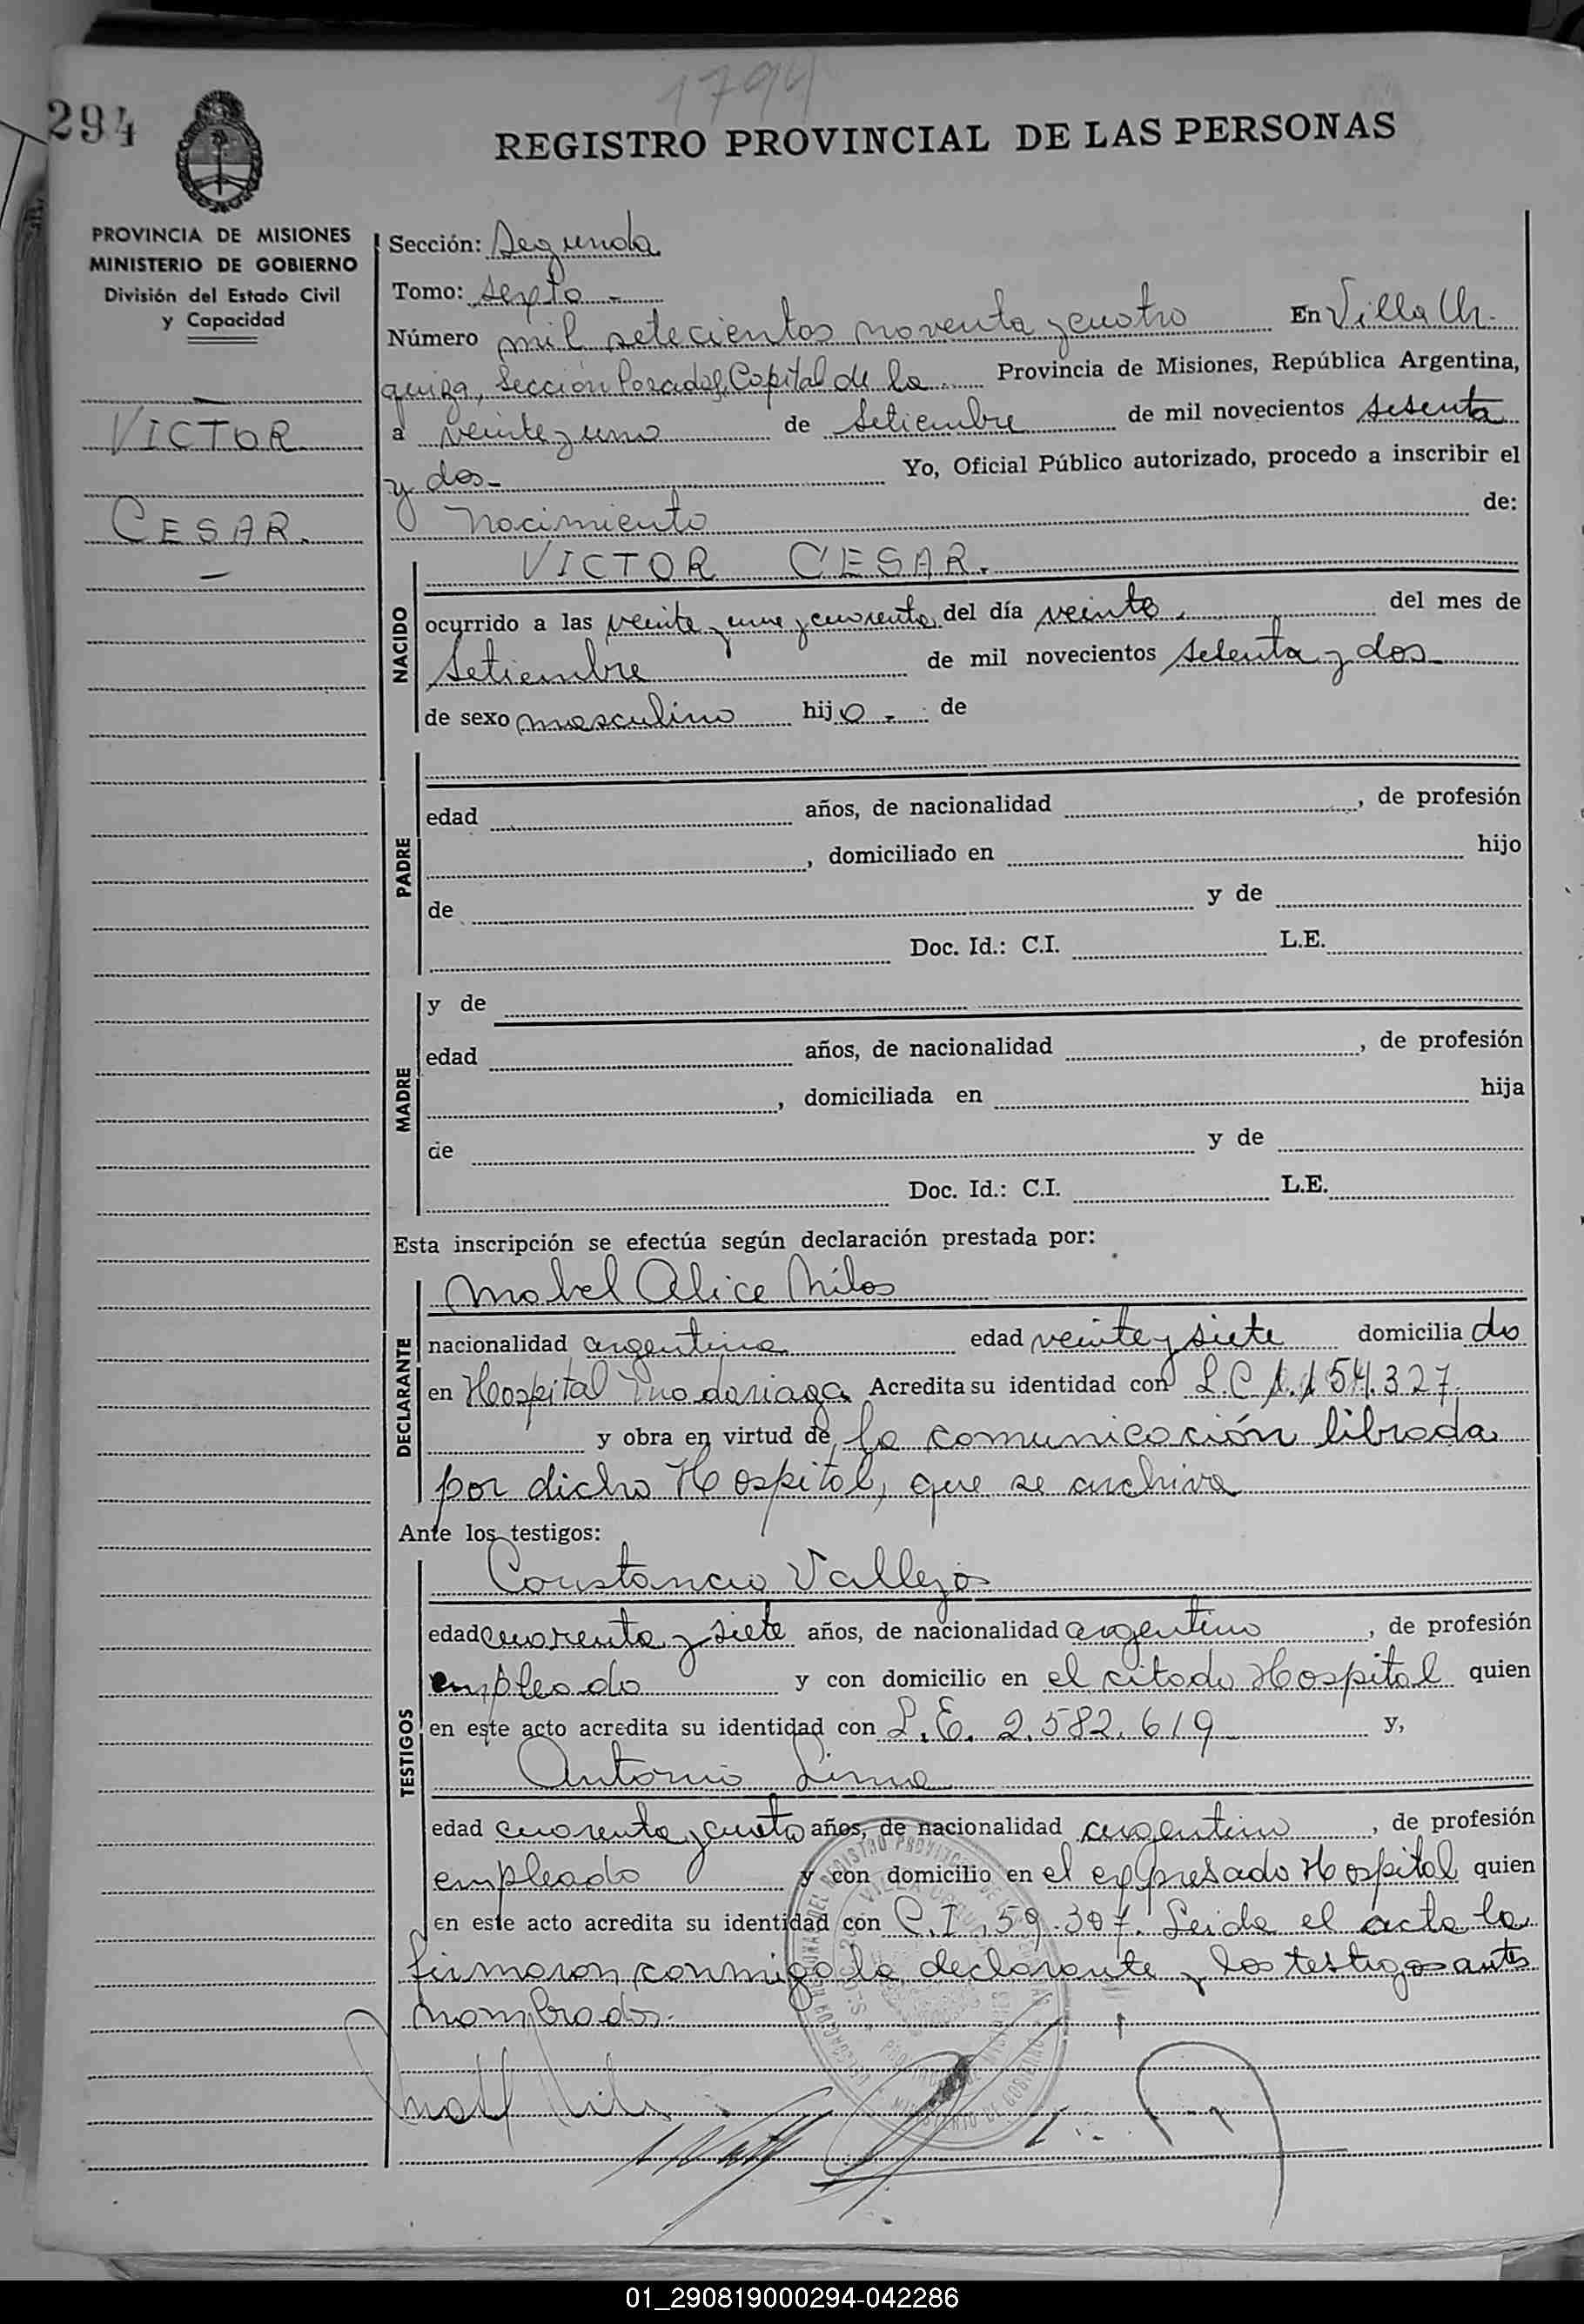 1794
294
REGISTRO PROVINCIAL DE LAS PERSONAS
PROVINCIA DE MISIONES
MINISTERIO DE GOBIERNO
División del Estado Civil
y Capacidad
VICTOR
CESAR.
Sección: Segunda
Tomo: sexto -
Número mil setecientos noventa y cuatro En Villa Ur-
quiza, Sección Posadas, Capital de la Provincia de Misiones, República Argentina,
a veinte y uno de Setiembre de mil novecientos setenta
y dos- Yo, Oficial Público autorizado, procedo a inscribir el
Nacimiento de:
NACIDO
VICTOR CESAR.
ocurrido a las veinte y una y cuarenta, del día veinte, del mes de
Setiembre de mil novecientos setenta y dos
de sexo masculino hijo - de
PADRE
edad años, de nacionalidad , de profesión
, domiciliado en hijo
de y de
Doc. Id.: C.I. L.E.
MADRE
y de
edad años, de nacionalidad , de profesión
, domiciliada en hija
de y de
Doc. Id.: C.I. L.E.
Esta inscripción se efectúa según declaración prestada por:
DECLARANTE
Mabel Alice Milos
nacionalidad argentina edad veinte y siete domiciliado
en Hospital Madariaga Acredita su identidad con L.C 1.154.327.
y obra en virtud de la comunicación librada
por dicho Hospital, que se archiva
Ante los testigos:
TESTIGOS
Constancio Vallejos
edad cuarenta y siete años, de nacionalidad argentino , de profesión
empleado y con domicilio en el citado Hospital quien
en este acto acredita su identidad con L.E. 2.582.619 y,
Antonio Lima
edad cuarenta y cuatro años, de nacionalidad argentino , de profesión
empleado y con domicilio en el expresado Hospital quien
en este acto acredita su identidad con C.I. 59.307. Leida el acta la
firmaron conmigo la declarante y los testigos antes
nombrados.-
01_290819000294-042286